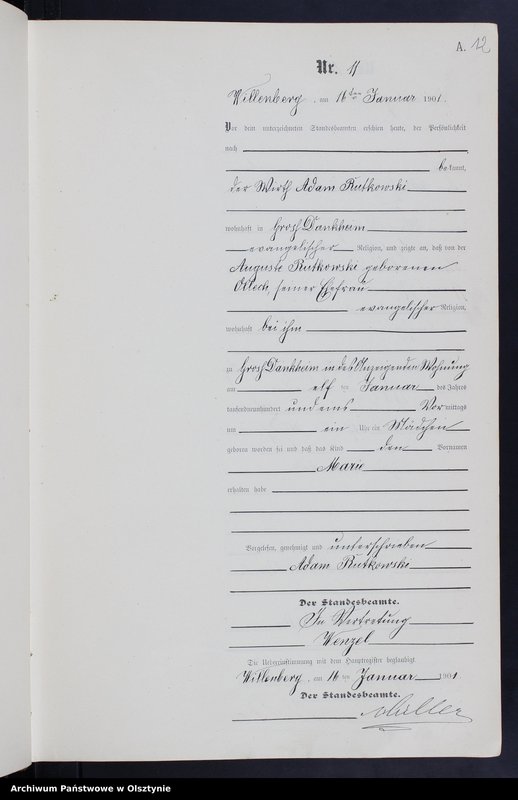 A. 12
Nr. 11
Willenberg, am 16ten Januar 1901.
Vor dem unterzeichneten Standesbeamten erschien heute, der Persönlichkeit
nach
bekannt,
der Wirth Adam Rutkowski
wohnhaft in Groß Dankheim
evangelischer Religion, und zeigte an, daß von der
Auguste Rutkowski geborenen
seiner Ehefrau
evangelischer Religion,
wohnhaft bei ihm
zu Groß Dankheim in des Anzeigenden Wohnung
am elf ten Januar des Jahres
tausendneunhundert und eins Vor mittags
um ein Uhr ein Mädchen
geboren worden sei und daß das Kind den Vornamen
Marie
erhalten habe
Vorgelesen, genehmigt und unterschrieben
Adam Rutkowski
Der Standesbeamte.
In Vertretung
Wenzel
Die Uebereinstimmung mit dem Hauptregister beglaubigt
Willenberg, am 16 ten Januar 1901
Der Standesbeamte.
Archiwum Państwowe w Olsztynie